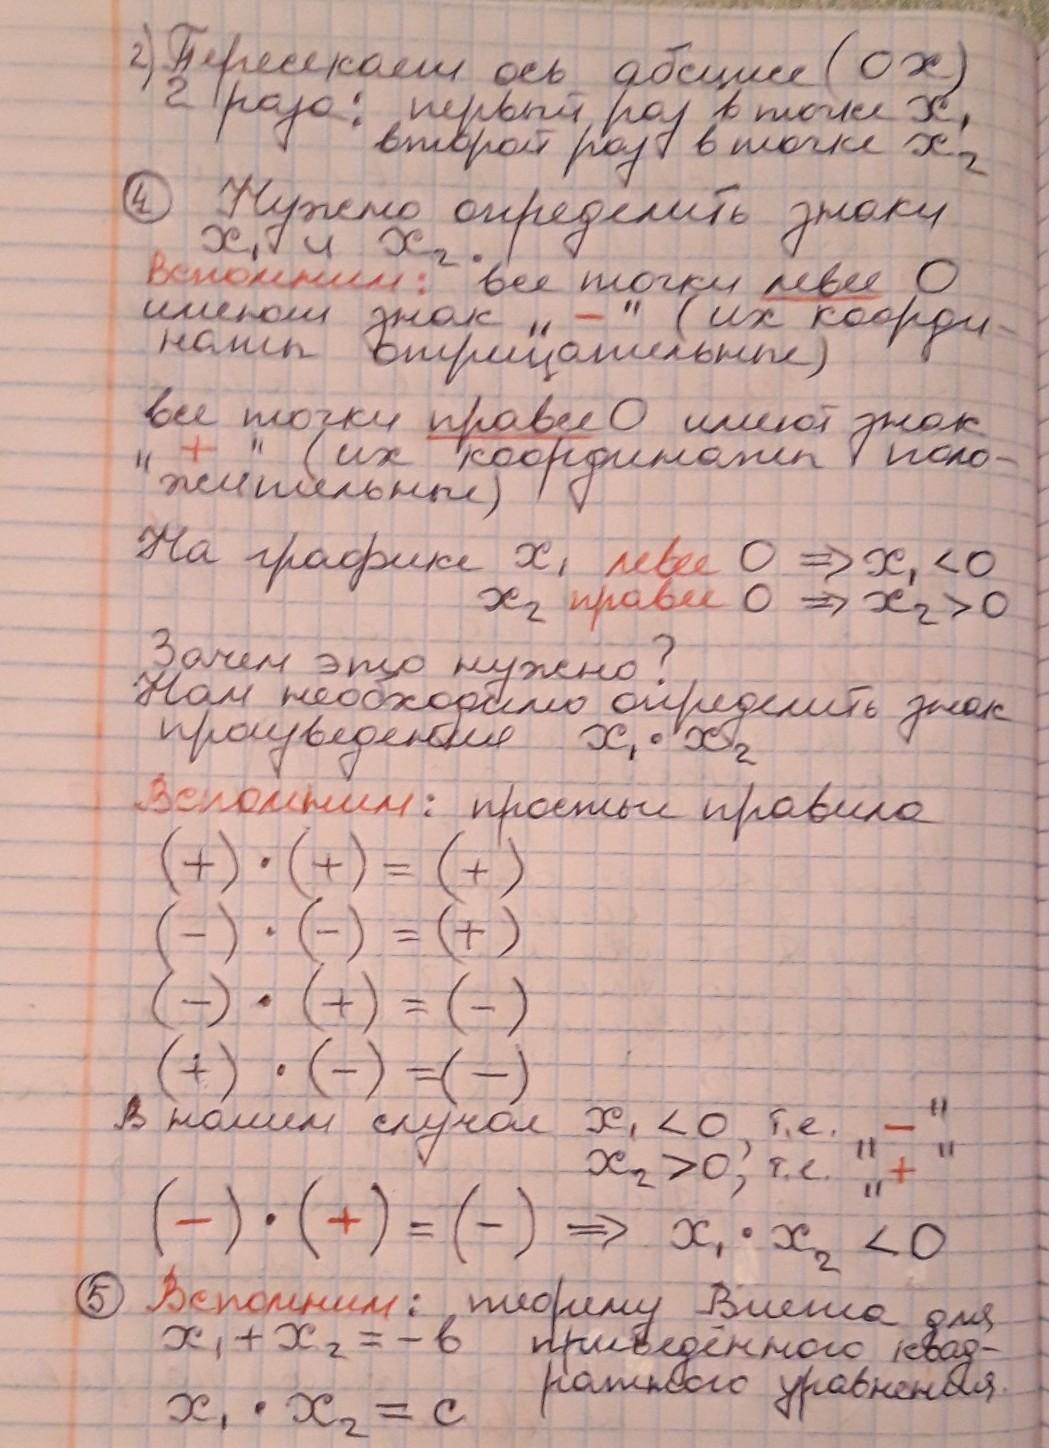 2) Пересекаем ось абсцисс (OX)
2 раза: первый раз в точке x₁
второй раз в точке x₂
④ Нужно определить знаки
x₁ и x₂.
Вспомним: все точки левее 0
имеют знак „ − " (их коорди-
наты отрицательные)
все точки правее 0 имеют знак
„ + " (их координаты поло-
жительные)
На графике x₁ левее 0 => x₁ < 0
x₂ правее 0 => x₂ > 0
Зачем это нужно?
Нам необходимо определить знак
произведения x₁ · x₂
Вспомним: простые правила
(+) · (+) = (+)
(−) · (−) = (+)
(−) · (+) = (−)
(+) · (−) = (−)
В нашем случае x₁ < 0, т.е. „ − "
x₂ > 0, т.е. „ + "
(−) · (+) = (−) => x₁ · x₂ < 0
⑤ Вспомним: теорему Виета для
x₁ + x₂ = −b приведённого квад-
ратного уравнения.
x₁ · x₂ = c